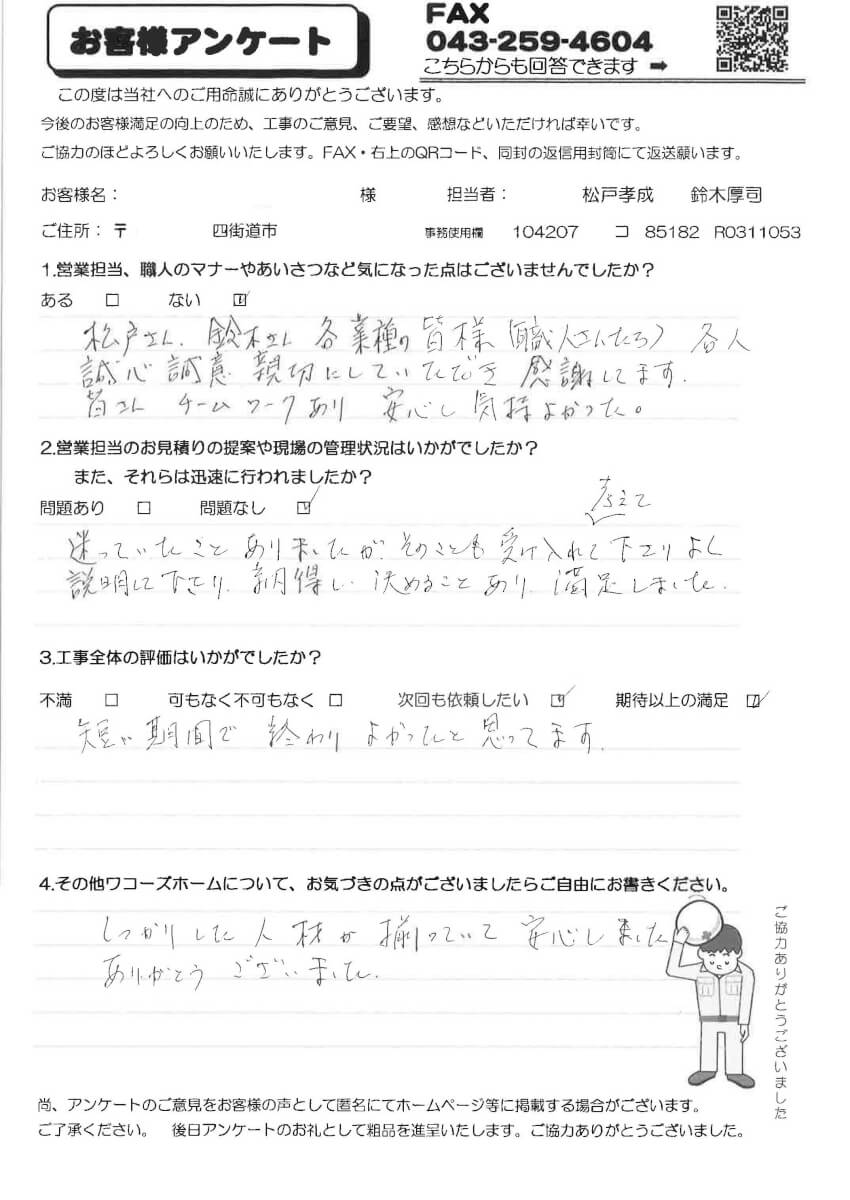 お客様アンケート
FAX
043-259-4604
こちらからも回答できます ➡
この度は当社へのご用命誠にありがとうございます。
今後のお客様満足の向上のため、工事のご意見、ご要望、感想などいただければ幸いです。
ご協力のほどよろしくお願いいたします。FAX・右上のQRコード、同封の返信用封筒にて返送願います。
お客様名： 様 担当者： 松戸孝成 鈴木厚司
ご住所：〒 四街道市 事務使用欄 104207 コ 85182 R0311053
1.営業担当、職人のマナーやあいさつなど気になった点はございませんでしたか？
ある □ ない ☑
松戸さん、鈴木さん 各業種の皆様（職人さんたち）各人
誠心誠意 親切にしていただき 感謝してます。
皆さん チームワークあり 安心し 気持よかった。
2.営業担当のお見積りの提案や現場の管理状況はいかがでしたか？
また、それらは迅速に行われましたか？
問題あり □ 問題なし ☑
考えて
迷っていたこと ありましたが そのことも 受け入れて下さり よく
説明して下さり、納得し、決めることあり、満足しました。
3.工事全体の評価はいかがでしたか？
不満 □ 可もなく不可もなく □ 次回も依頼したい ☑ 期待以上の満足 ☑
短い期間で 終わり よかったと 思ってます。
4.その他ワコーズホームについて、お気づきの点がございましたらご自由にお書きください。
しっかりした人材が揃っていて 安心しました
ありがとうございました。
ご協力ありがとうございました
尚、アンケートのご意見をお客様の声として匿名にてホームページ等に掲載する場合がございます。
ご了承ください。 後日アンケートのお礼として粗品を進呈いたします。ご協力ありがとうございました。